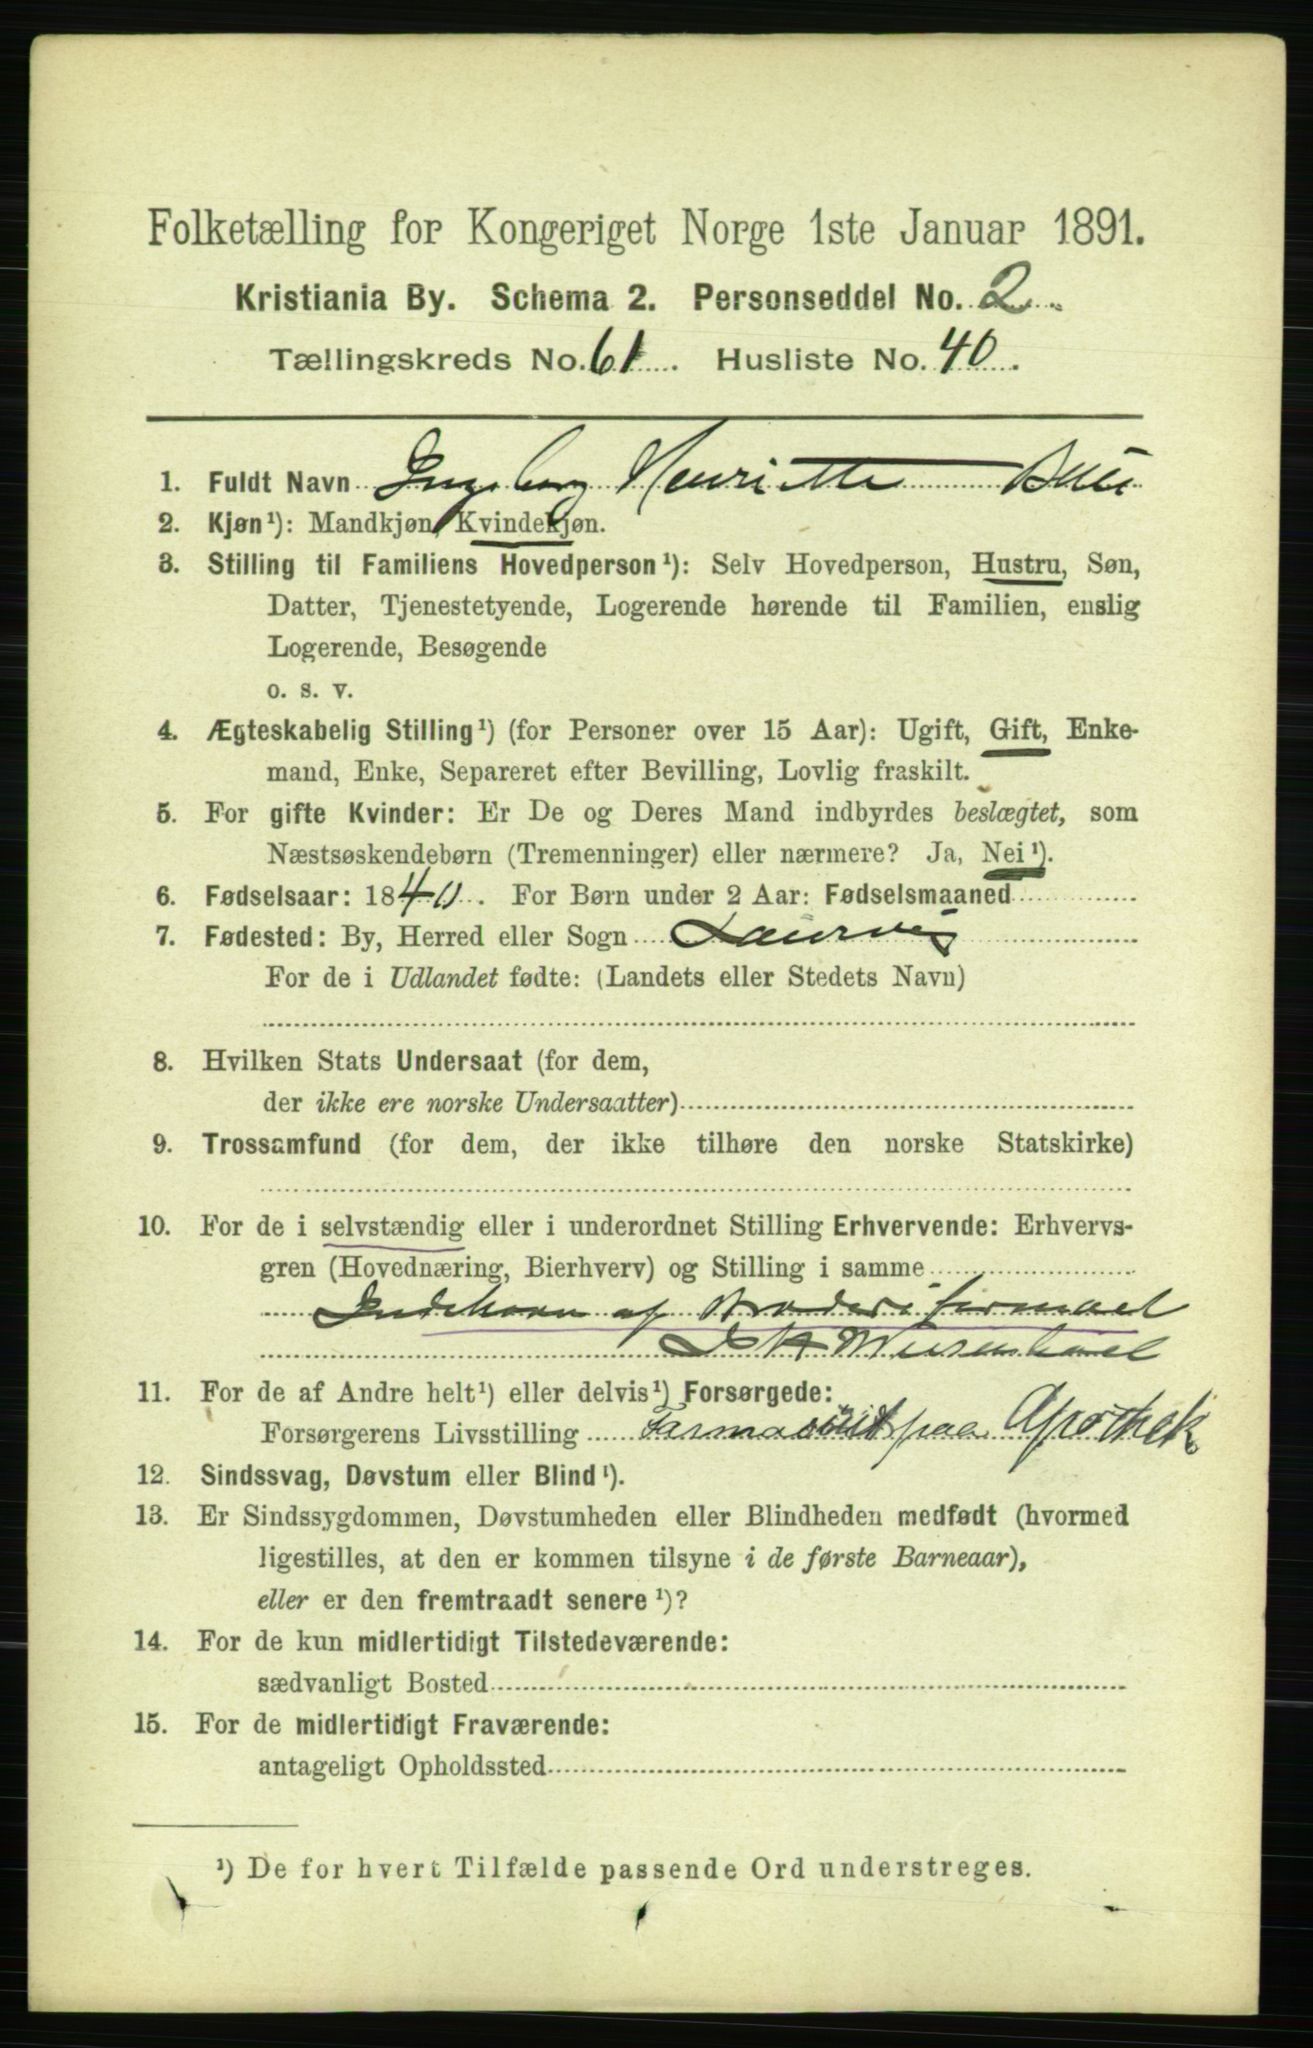 Folketælling for Kongeriget Norge 1ste Januar 1891.
Kristiania By. Schema 2. Personseddel No. 2
Tællingskreds No. 61. Husliste No. 40.
1. Fuldt Navn Ingeborg Henriette
2. Kjøn¹): Mandkjøn, Kvindekjøn.
3. Stilling til Familiens Hovedperson¹): Selv Hovedperson, Hustru, Søn,
Datter, Tjenestetyende, Logerende hørende til Familien, enslig
Logerende, Besøgende
o. s. v.
4. Ægteskabelig Stilling¹) (for Personer over 15 Aar): Ugift, Gift, Enke-
mand, Enke, Separeret efter Bevilling, Lovlig fraskilt.
5. For gifte Kvinder: Er De og Deres Mand indbyrdes beslægtet, som
Næstsøskendebørn (Tremenninger) eller nærmere? Ja, Nei¹).
6. Fødselsaar: 1840. For Børn under 2 Aar: Fødselsmaaned
7. Fødested: By, Herred eller Sogn Laurvig
For de i Udlandet fødte: (Landets eller Stedets Navn)
8. Hvilken Stats Undersaat (for dem,
der ikke ere norske Undersaatter)
9. Trossamfund (for dem, der ikke tilhøre den norske Statskirke)
10. For de i selvstændig eller i underordnet Stilling Erhvervende: Erhvervs-
gren (Hovednæring, Bierhverv) og Stilling i samme
Indehaver af Broderiforretning
11. For de af Andre helt¹) eller delvis¹) Forsørgede:
Forsørgerens Livsstilling Farmaceut paa Apothek
12. Sindssvag, Døvstum eller Blind¹).
13. Er Sindssygdommen, Døvstumheden eller Blindheden medfødt (hvormed
ligestilles, at den er kommen tilsyne i de første Barneaar),
eller er den fremtraadt senere¹)?
14. For de kun midlertidigt Tilstedeværende:
sædvanligt Bosted
15. For de midlertidigt Fraværende:
antageligt Opholdssted
¹) De for hvert Tilfælde passende Ord understreges.